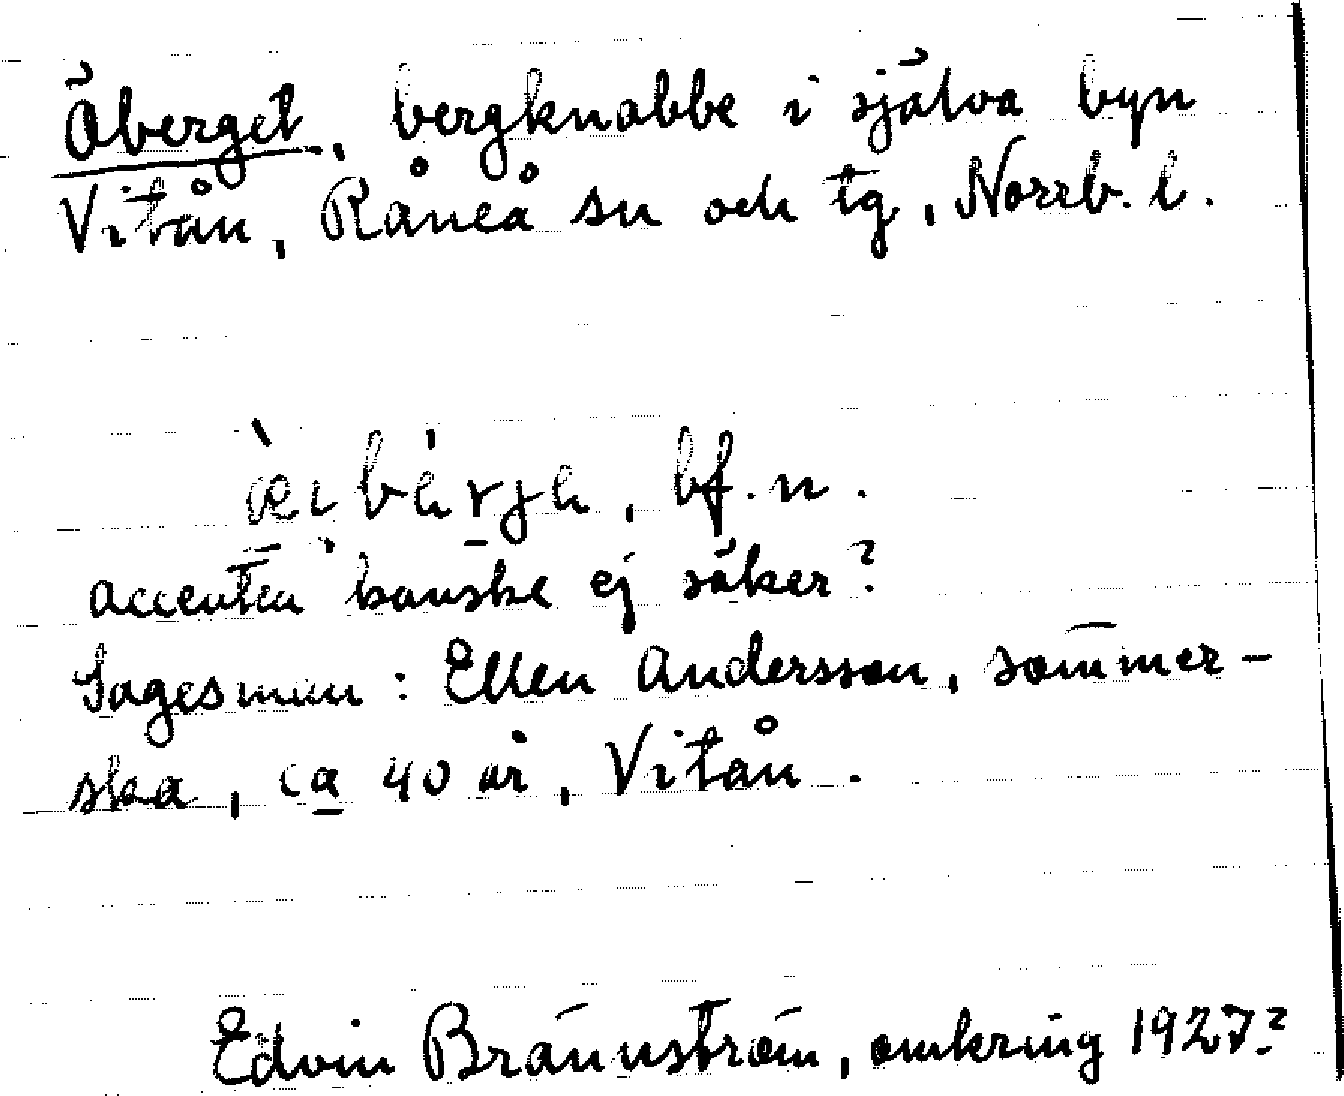 Äberget, bergknabbe i själva byn
Vitån, Råneå sn och tg, Norrb. l.
bf. n.
accenten kanske ej säker?
Sagesman: Ellen Andersson, sömmer-
ska, ca 40 år, Vitån.
Edvin Brännström, omkring 1927?